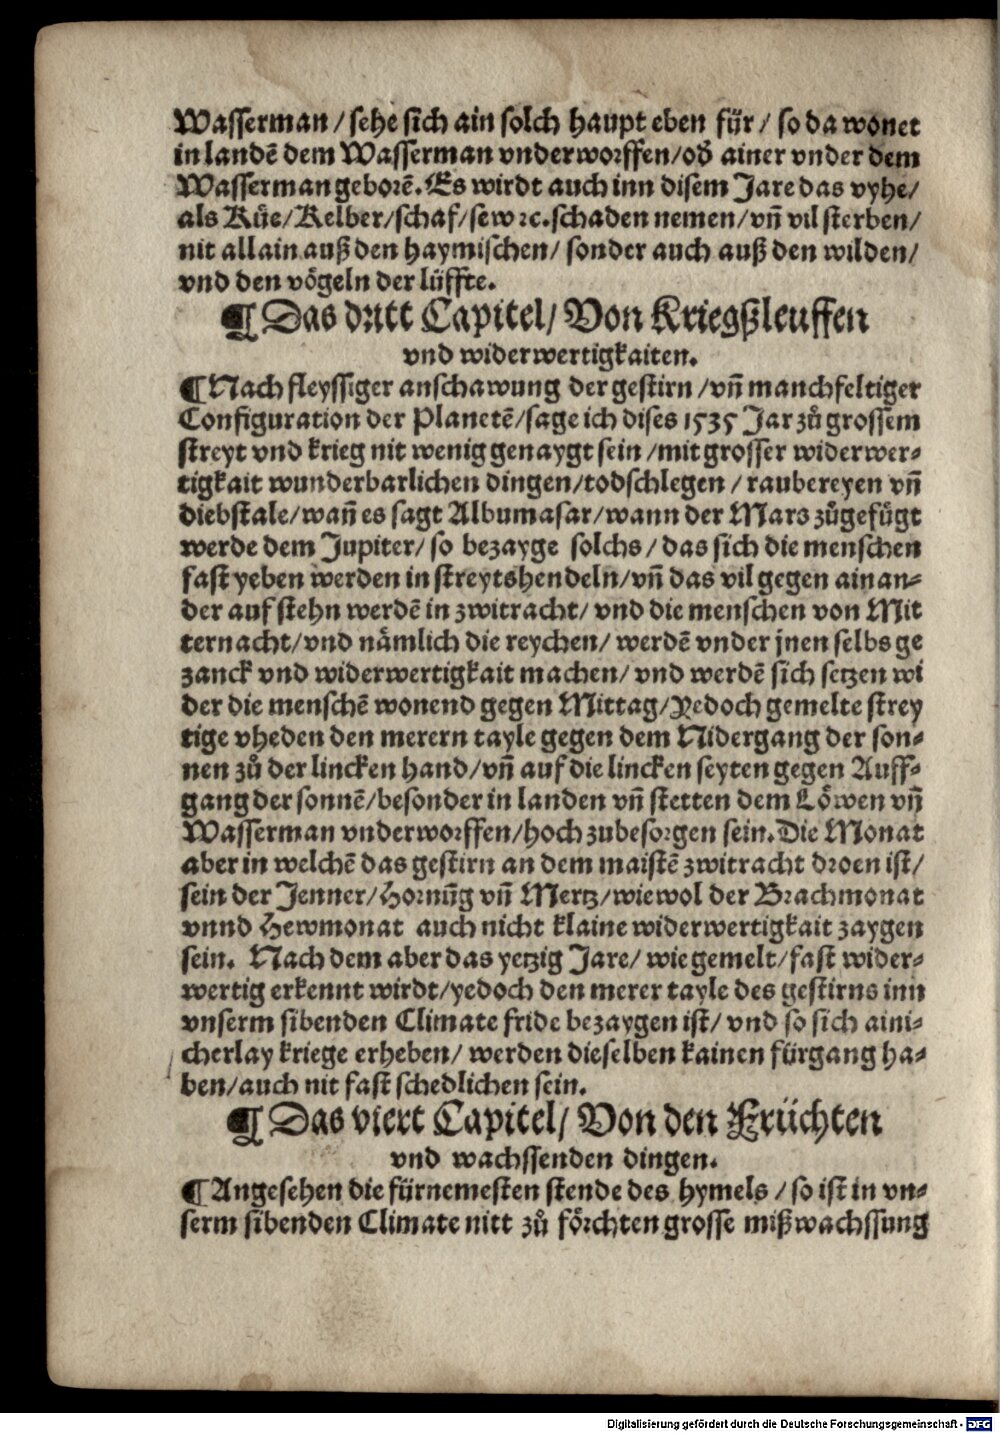 Wasserman / sehe sich ain solch haupt eben für / so da wonet
in landẽ dem Wasserman vnderworffen/ob ainer vnder dem
Wasserman geborẽ. Es wirdt auch inn disem Jare das vyhe/
als Küe/Kelber/schaf/sew ꝛc. schaden nemen/vñ vil sterben/
nit allain auß den haymischen/ sonder auch auß den wilden/
vnd den vögeln der lüffte.
¶ Das dritt Capitel/ Von Kriegßleuffen
vnd widerwertigkaiten.
¶ Nach fleyssiger anschawung der gestirn /vñ manchfeltiger
Configuration der Planetẽ/sage ich dises 1535 Jar zů grossem
streyt vnd krieg nit wenig genaygt sein /mit grosser widerwer-
tigkait wunderbarlichen dingen/todschlegen / raubereyen vñ
diebstale/wañ es sagt Albumasar/wann der Mars zůgefügt
werde dem Jupiter/ so bezayge solchs / das sich die menschen
fast yeben werden in streytshendeln/vñ das vil gegen ainan-
der auf stehn werdẽ in zwitracht/ vnd die menschen von Mit
ternacht/vnd nämlich die reychen/ werdẽ vnder jnen selbs ge
zanck vnd widerwertigkait machen/ vnd werdẽ sich setzen wi
der die menschẽ wonend gegen Mittag/Yedoch gemelte strey
tige vheden den merern tayle gegen dem Nidergang der son-
nen zů der lincken hand/vñ auf die lincken seyten gegen Auff-
gang der sonnẽ/besonder in landen vñ stetten dem Löwen vñ
Wasserman vnderworffen/hoch zubesorgen sein. Die Monat
aber in welchẽ das gestirn an dem maistẽ zwitracht droen ist/
sein der Jenner/Hornũg vñ Mertz/wiewol der Brachmonat
vnnd Hewmonat auch nicht klaine widerwertigkait zaygen
sein. Nach dem aber das yetzig Jare/ wie gemelt/fast wider-
wertig erkennt wirdt/yedoch den merer tayle des gestirns inn
vnserm sibenden Climate fride bezaygen ist/ vnd so sich aini-
cherlay kriege erheben/ werden dieselben kainen fürgang ha-
ben/auch nit fast schedlichen sein.
¶ Das viert Capitel/ Von den Früchten
vnd wachssenden dingen.
¶ Angesehen die fürnemesten stende des hymels / so ist in vn-
serm sibenden Climate nitt zů förchten grosse mißwachssung
Digitalisierung gefördert durch die Deutsche Forschungsgemeinschaft - DFG